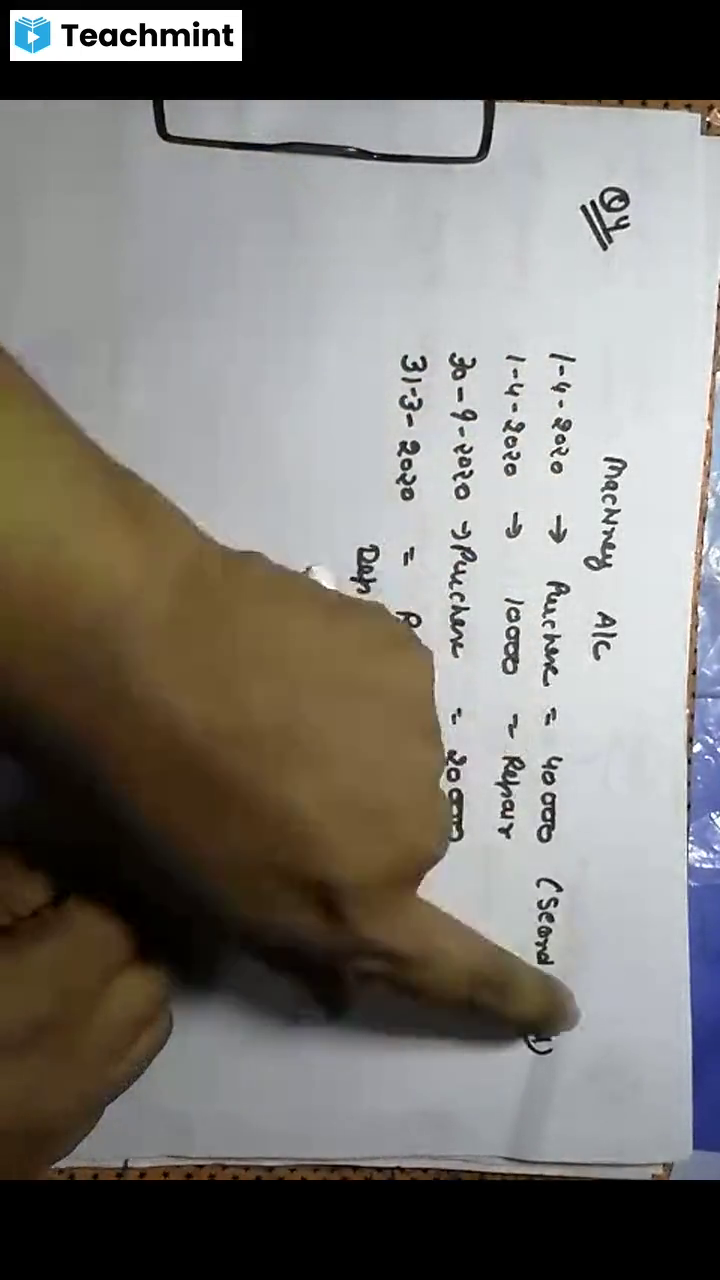 Teachmint
Q4
Machney A/C
1-4-2020 → Purchase = 40000 (Second
1-4-2020 → 10000 = Repair
30-9-2020 → Purchase = 20000
31-3-2020 =
Dep